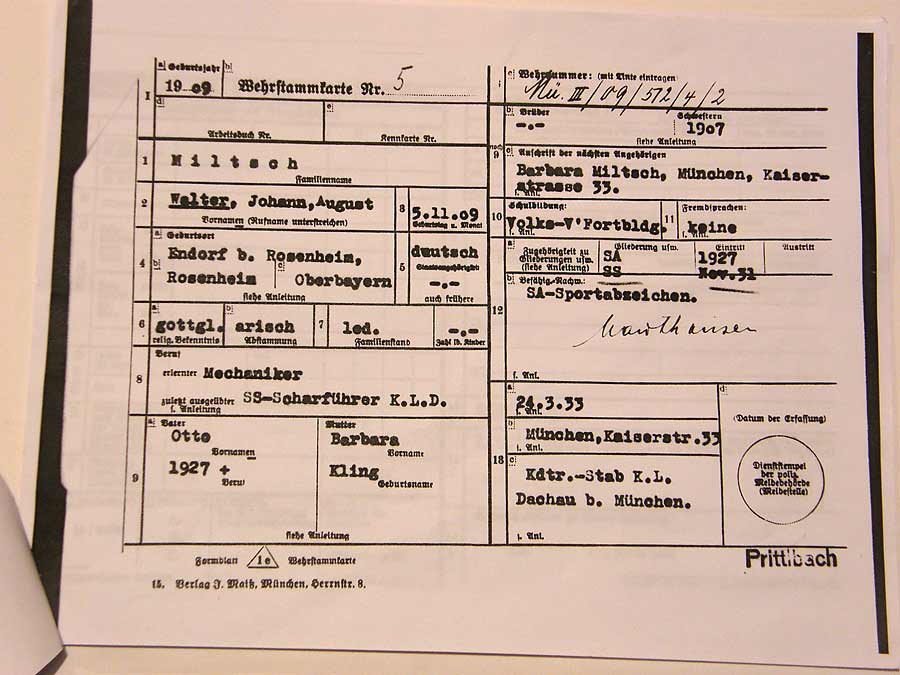 a Geburtsjahr b
1909 Wehrstammkarte Nr. 5
I
d e
Arbeitsbuch Nr. Kennkarte Nr.
1 Miltsch
Familienname
2 Walter, Johann,August
Vornamen (Rufname unterstreichen)
3 5.11.09
Geburtstag u. Monat
a Geburtsort
4 Endorf b. Rosenheim,
b c
Rosenheim Oberbayern
siehe Anleitung
5 deutsch
Staatsangehörigkeit
-.-
auch frühere
6 a gottgl. b arisch 7 led. -.-
relig. Bekenntnis Abstammung Familienstand Zahl d. Kinder
Beruf
8 erlernter Mechaniker
zuletzt ausgeübter SS-Scharführer K.L.D.
s. Anleitung
a Vater Mutter
Otto Barbara
Vornamen Vorname
9 1927 + Kling
Beruf Geburtsname
siehe Anleitung
Formblatt 1e Wehrstammkarte
15. Verlag J. Maiß, München, Herrnstr. 8.
c Wehrnummer: (mit Tinte eintragen)
Mü. III/09/512/4/2
b Brüder Schwestern
-.- 1907
siehe Anleitung
noch 9 c Anschrift der nächsten Angehörigen
Barbara Miltsch, München, Kaiser-
strasse 33.
s. Anl.
10 Schulbildung: 11 Fremdsprachen:
Volks-V'Fortbldg. keine
s. Anl. s. Anl.
a Zugehörigkeit zu Gliederung usw. Eintritt Austritt
Gliederungen usw. SA 1927
(siehe Anleitung) SS Nov.31
b Befähig.-Nachw.:
SA-Sportabzeichen.
12
Mauthausen
s. Anl.
a d
24.3.33
s. Anl.
(Datum der Erfassung)
b München,Kaiserstr.33
s. Anl.
18 c Kdtr.-Stab K.L.
Dachau b. München.
s. Anl.
Dienststempel
der poliz.
Meldebehörde
(Meldestelle)
Prittlbach